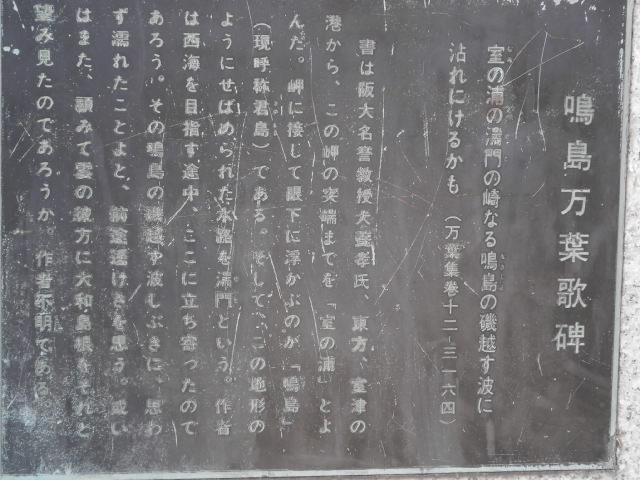 鳴島万葉歌碑
室の浦の湍門の崎なる鳴島の磯越す波に
沾れにけるかも（万葉集巻十二－三一六四）
書は阪大名誉教授犬養孝氏、東方、室津の
港から、この岬の突端までを「室の浦」とよ
んだ。岬に接して眼下に浮かぶのが「鳴島」
（現呼称君島）である。そして、この地形の
ようにせばめられた水路を湍門という。作者
は西海を目指す途中、ここに立ち寄ったので
あろう。その鳴島の磯越す波しぶきに、思わ
ず濡れたことよと、前途遥けきを思う。或い
はまた、顧みて雲の彼方に大和島根をそれと
望み見たのであろうか。作者不明である。